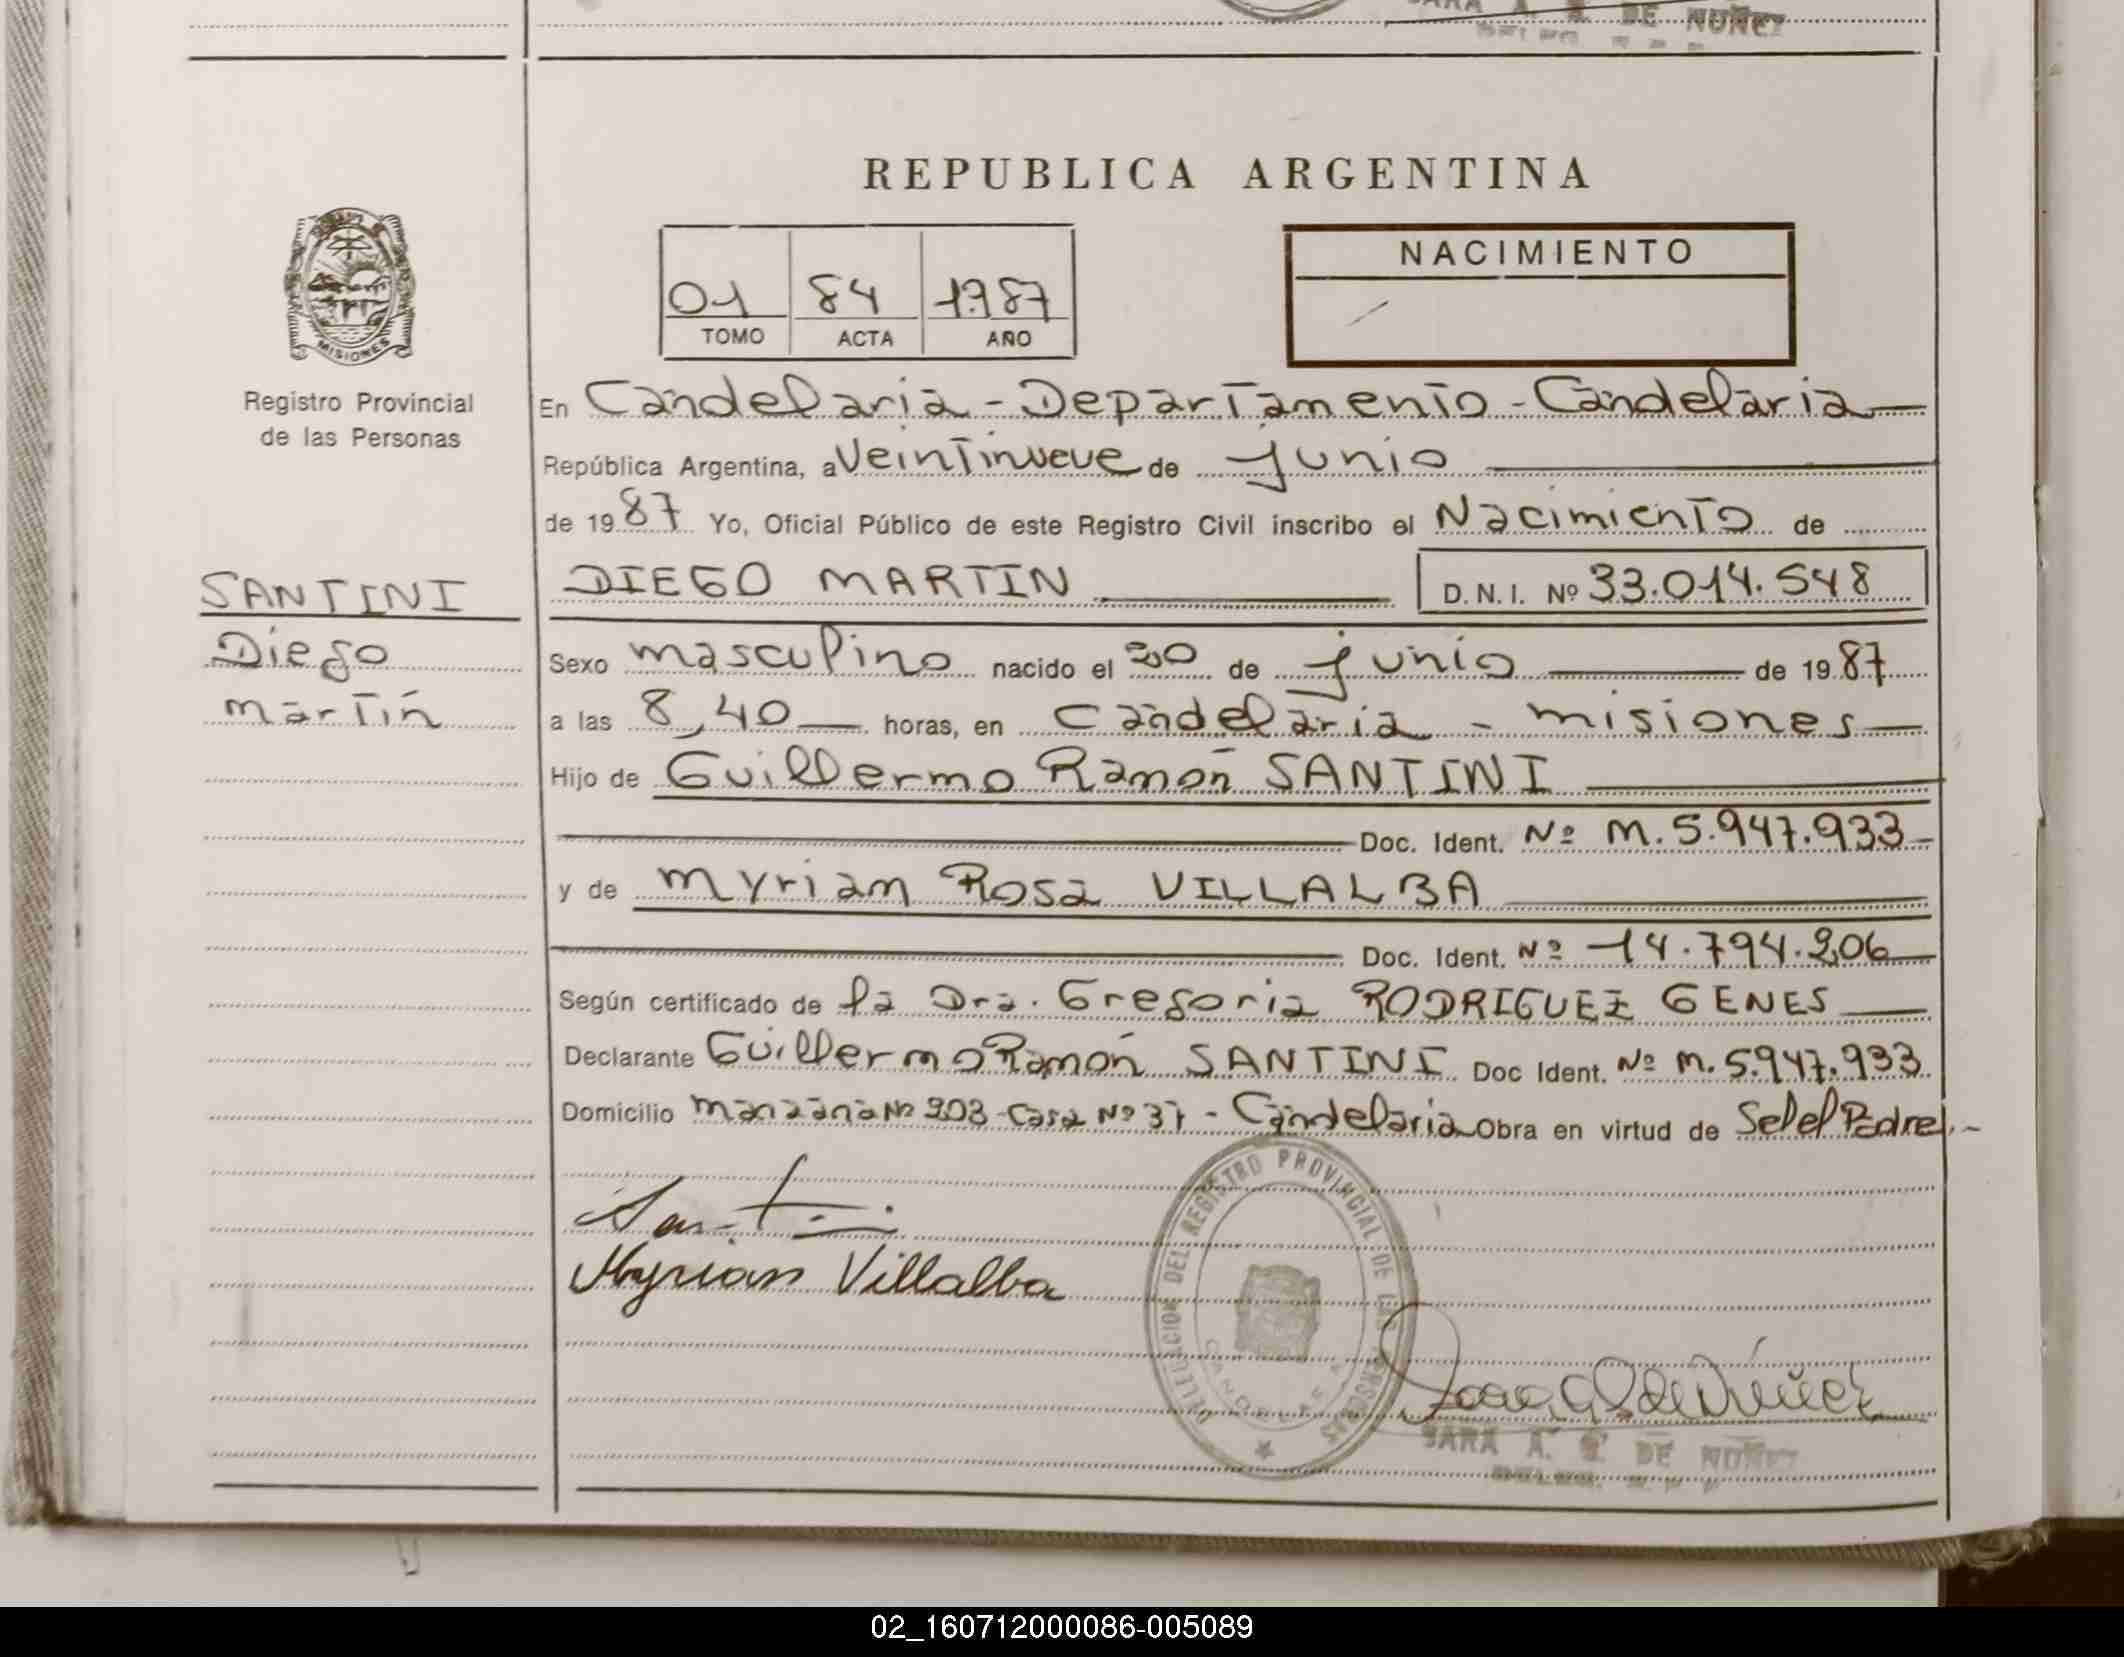 SARA A. S. DE NUÑEZ
REPUBLICA ARGENTINA
NACIMIENTO
01 84 1987
TOMO ACTA AÑO
MISIONES
Registro Provincial
de las Personas
En Candelaria - Departamento - Candelaria
República Argentina, a Veintinueve de junio
de 1987 Yo, Oficial Público de este Registro Civil inscribo el Nacimiento de
SANTINI
Diego
Martín
DIEGO MARTIN D.N.I. Nº 33.014.548
Sexo masculino nacido el 20 de junio de 1987
a las 8,40 horas, en Candelaria - misiones
Hijo de Guillermo Ramón SANTINI
Doc. Ident. Nº M. 5.947.933
y de Myriam Rosa VILLALBA
Doc. Ident. Nº 14.794.206
Según certificado de la Dra. Gregoria RODRIGUEZ GENES
Declarante Guillermo Ramón SANTINI Doc Ident. Nº M. 5.947.933
Domicilio Manzana Nº 203 - Casa Nº 37 - Candelaria Obra en virtud de Ser el Padre.-
Santini
Myrian Villalba
DELEGACION DEL REGISTRO PROVINCIAL DE LAS PERSONAS
CANDELARIA
SARA A. S. DE NUÑEZ
02_160712000086-005089